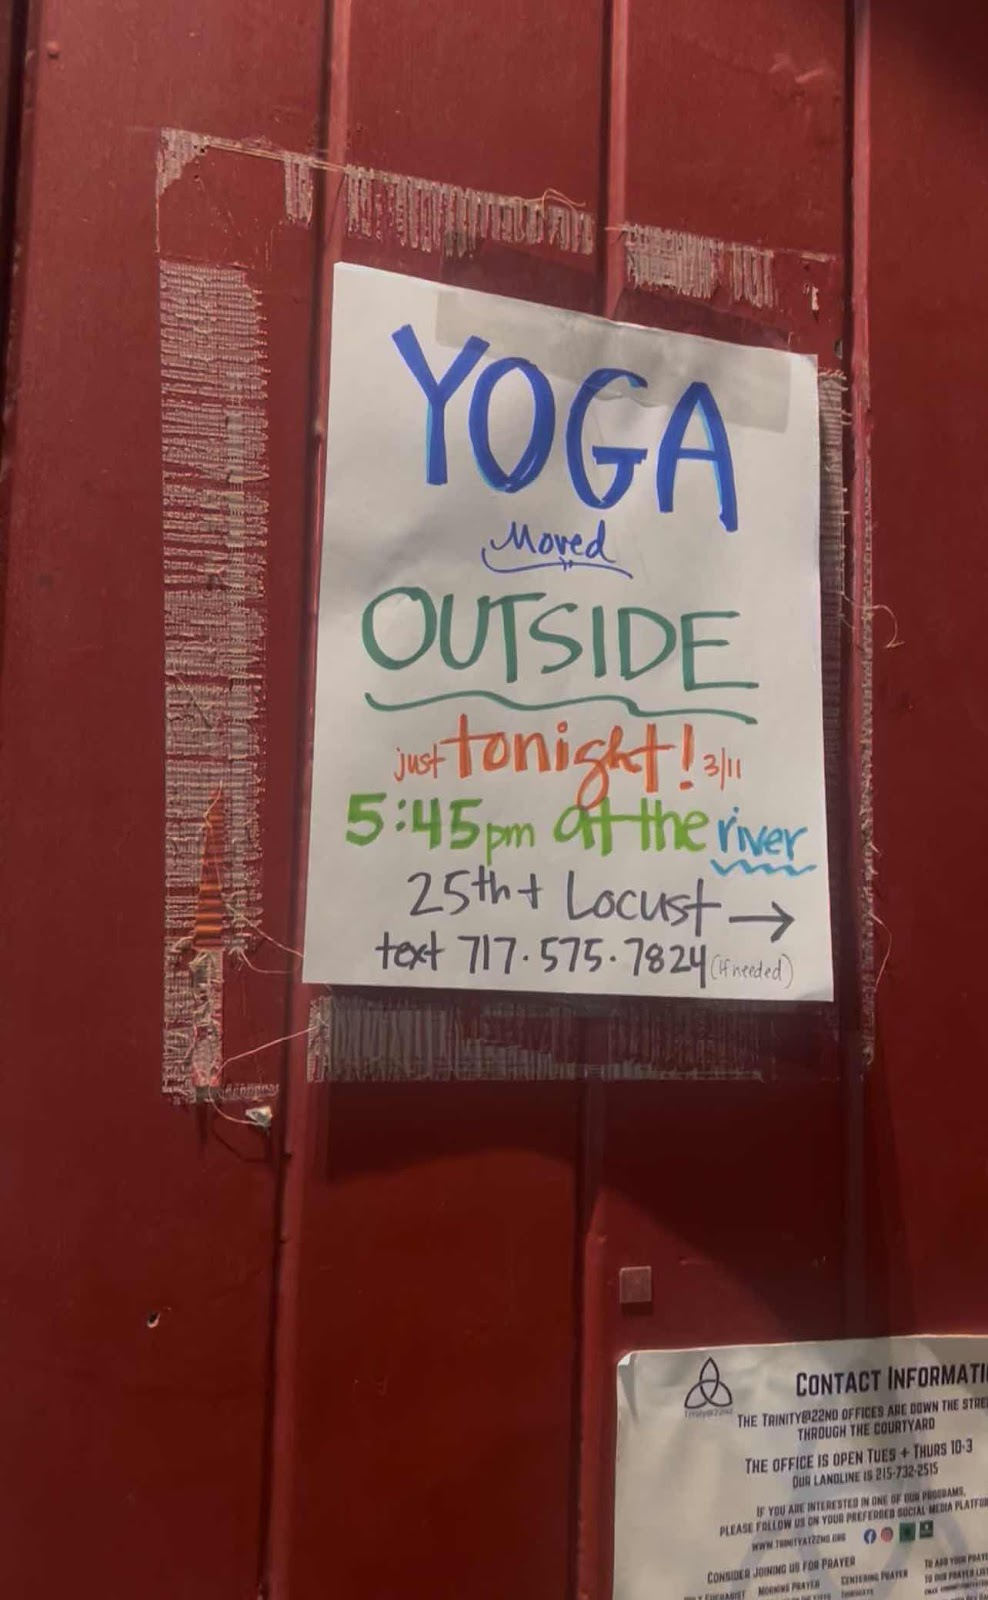 YOGA
Moved
OUTSIDE
just tonight! 3/11
5:45pm at the river
25th + Locust →
text 717.575.7824 (if needed)
CONTACT INFORMATI
Trinity@22nd
THE TRINITY@22ND OFFICES ARE DOWN THE STREE
THROUGH THE COURTYARD
THE OFFICE IS OPEN TUES + THURS 10-3
OUR LANDLINE IS 215-732-2515
IF YOU ARE INTERESTED IN ONE OF OUR PROGRAMS,
PLEASE FOLLOW US ON YOUR PREFERRED SOCIAL MEDIA PLATFOR
WWW.TRINITYAT22ND.ORG
CONSIDER JOINING US FOR PRAYER
TO ADD YOUR PRAYE
TO OUR PRAYER LIST
EUCHARIST MORNING PRAYER CENTERING PRAYER